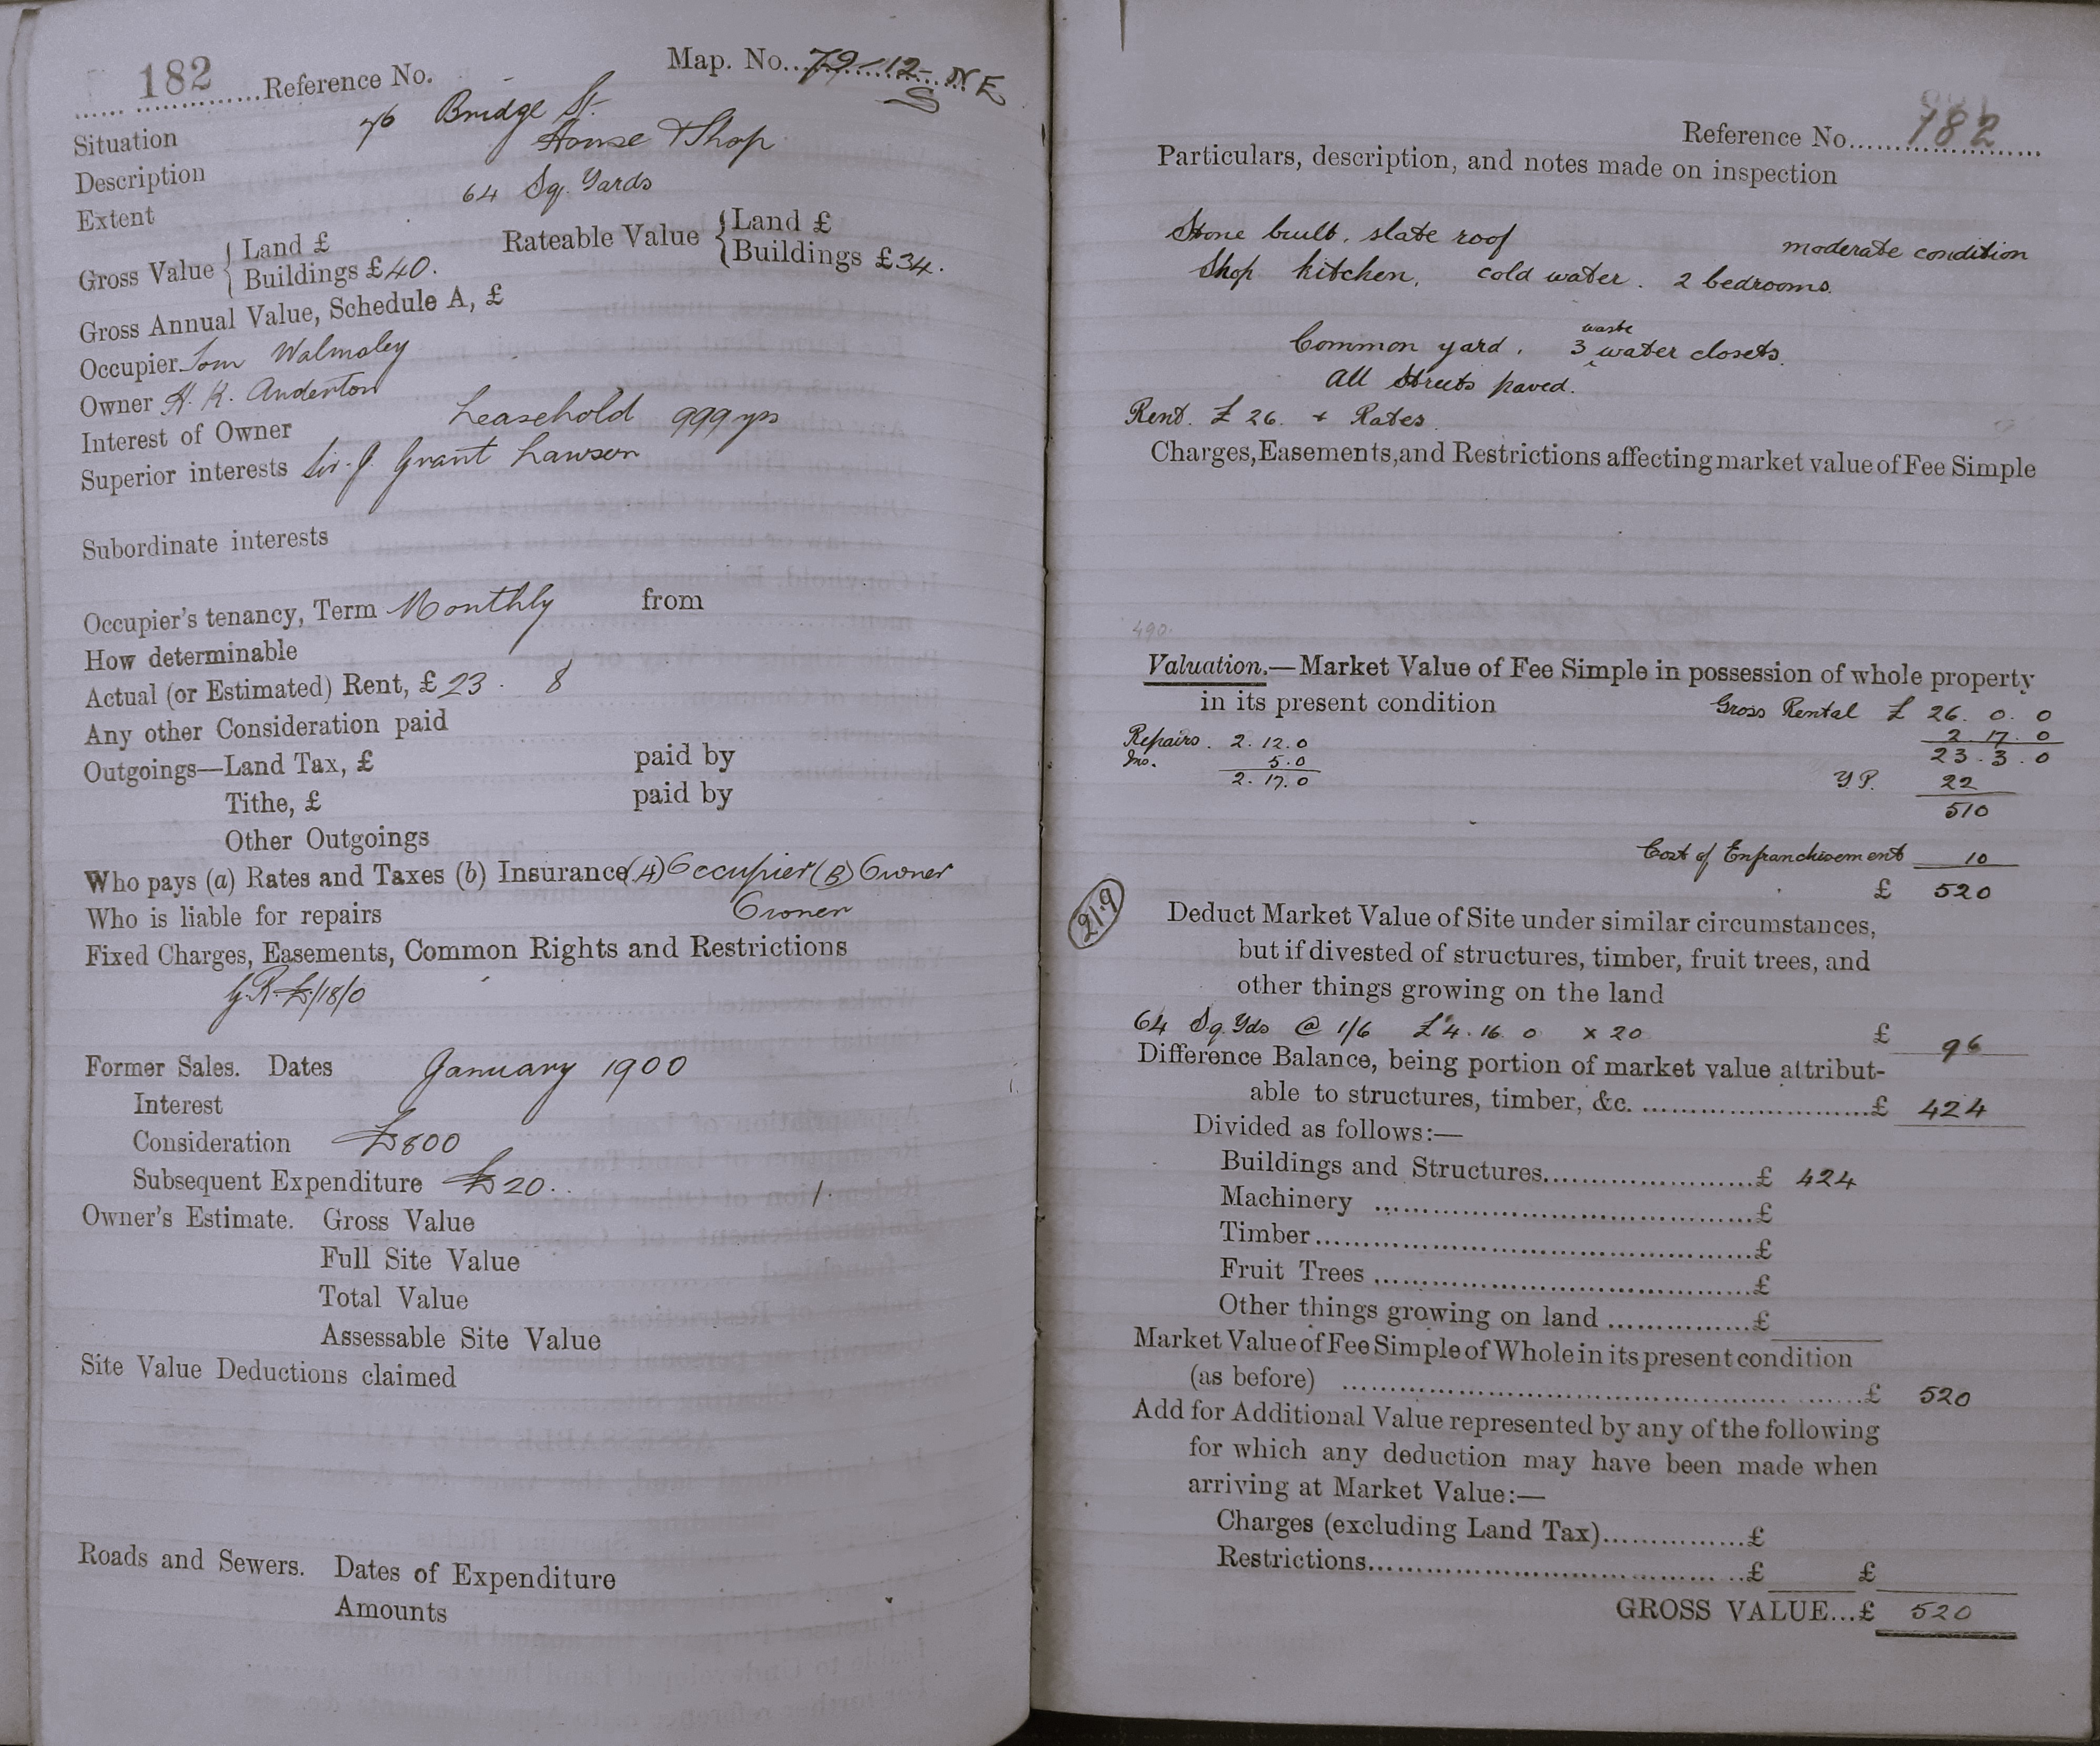 182 Reference No. Map. No. 79-12 NE
S
Situation 76 Bridge St.
Description House & Shop
Extent 64 Sq. Yards
Gross Value { Land £ Rateable Value { Land £
Buildings £40. Buildings £34.
Gross Annual Value, Schedule A, £
Occupier Tom Walmsley
Owner H. K. Anderton
Interest of Owner Leasehold 999 yrs
Superior interests Sir. J. Grant Lawson
Subordinate interests
Occupier's tenancy, Term Monthly from
How determinable
Actual (or Estimated) Rent, £23. 8
Any other Consideration paid
Outgoings—Land Tax, £ paid by
Tithe, £ paid by
Other Outgoings
Who pays (a) Rates and Taxes (b) Insurance (A) Occupier (B) Owner
Who is liable for repairs Owner
Fixed Charges, Easements, Common Rights and Restrictions
G.R. £1/18/0
Former Sales. Dates January 1900
Interest
Consideration £800
Subsequent Expenditure £20..
Owner's Estimate. Gross Value
Full Site Value
Total Value
Assessable Site Value
Site Value Deductions claimed
Roads and Sewers. Dates of Expenditure
Amounts
Reference No. 782
Particulars, description, and notes made on inspection
Stone built. slate roof moderate condition
Shop kitchen. cold water. 2 bedrooms.
waste
Common yard. 3 ^ water closets.
All streets paved.
Rent. £ 26. + Rates.
Charges, Easements, and Restrictions affecting market value of Fee Simple
490.
Valuation.—Market Value of Fee Simple in possession of whole property
in its present condition Gross Rental £ 26. 0. 0
Repairs. 2. 12. 0 2. 17. 0
Ins. 5. 0 23. 3. 0
2. 17. 0 Y.P. 22
510
Cost of Enfranchisement 10
£ 520
219 Deduct Market Value of Site under similar circumstances,
but if divested of structures, timber, fruit trees, and
other things growing on the land
64 Sq. Yds @ 1/6 £4. 16. 0 x 20 £ 96
Difference Balance, being portion of market value attribut-
able to structures, timber, &c. £ 424
Divided as follows:—
Buildings and Structures £ 424
Machinery £
Timber £
Fruit Trees £
Other things growing on land £
Market Value of Fee Simple of Whole in its present condition
(as before) £ 520
Add for Additional Value represented by any of the following
for which any deduction may have been made when
arriving at Market Value:—
Charges (excluding Land Tax) £
Restrictions £ £
GROSS VALUE...£ 520